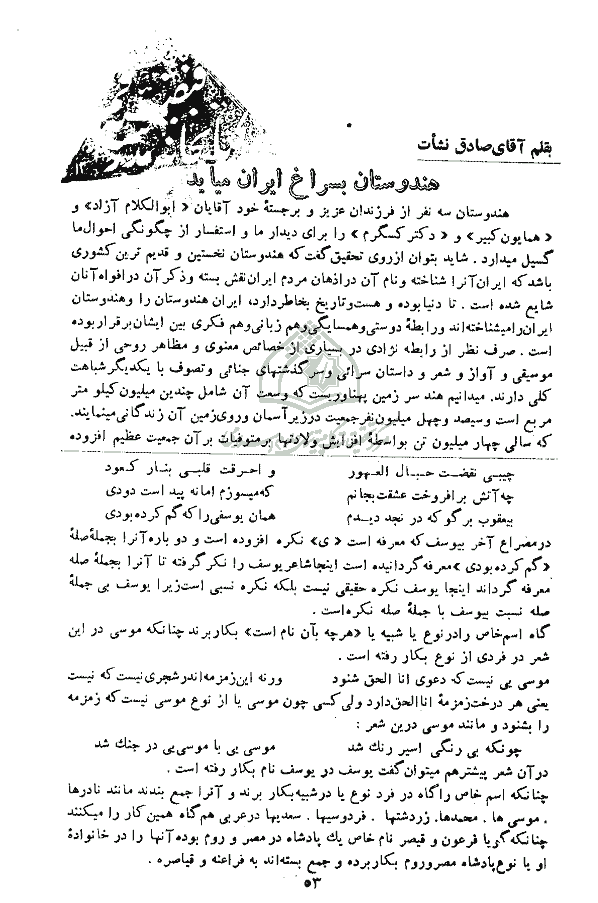 بقلم آقای صادق نشأت
هندوستان بسراغ ایران میآید
هندوستان سه نفر از فرزندان عزیز و برجستهٔ خود آقایان «ابوالکلام آزاد» و
«همایون کبیر» و «دکتر کسگرم» را برای دیدار ما و استفسار از چگونگی احوال ما
گسیل میدارد . شاید بتوان از روی تحقیق گفت که هندوستان نخستین و قدیم ترین کشوری
باشد که ایران آنرا شناخته و نام آن در اذهان مردم ایران نقش بسته و ذکر آن در افواه آنان
شایع شده است . تا دنیا بوده و هست و تاریخ بخاطر دارد، ایران هندوستان را و هندوستان
ایران را میشناخته اند و رابطهٔ دوستی و همسایگی و هم زبانی و هم فکری بین ایشان برقرار بوده
است . صرف نظر از رابطه نژادی در بسیاری از خصائص معنوی و مظاهر روحی از قبیل
موسیقی و آواز و شعر و داستان سرائی و سرگذشتهای جنائی و تصوف با یکدیگر شباهت
کلی دارند. میدانیم هند سر زمین پهناوریست که وسعت آن شامل چندین میلیون کیلو متر
مربع است و سیصد و چهل میلیون نفر جمعیت در زیر آسمان و روی زمین آن زندگانی مینمایند.
که سالی چهار میلیون تن بواسطهٔ افزایش ولادتها بر متوفیات بر آن جمعیت عظیم افزوده
چیبی نقضت حبال العهور و احرقت قلبی بنار کعود
چه آتش برافروخت عشقت بجانم که میسوزم اما نه پید است دودی
بیعقوب بر گو که در نجد دیدم همان یوسفی را که گم کرده بودی
در مصراع آخر بیوسف که معرفه است «ی» نکره افزوده است و دو باره آنرا بجملهٔ صلهٔ
«گم کرده بودی» معرفه گردانیده است اینجا شاعر یوسف را نکر گرفته تا آنرا بجملهٔ صله
معرفه گرداند اینجا یوسف نکره حقیقی نیست بلکه نکره نسبی است زیرا یوسف بی جملهٔ
صله نسبت بیوسف با جملهٔ صله نکره است .
گاه اسم خاص را در نوع یا شبیه یا «هرچه بآن نام است» بکار برند چنانکه موسی در این
شعر در فردی از نوع بکار رفته است .
موسی یی نیست که دعوی انا الحق شنود ورنه این زمزمه اندر شجری نیست که نیست
یعنی هر درخت زمزمهٔ انا الحق دارد ولی کسی چون موسی یا از نوع موسی نیست که زمزمه
را بشنود و مانند موسی درین شعر :
چونکه بی رنگی اسیر رنك شد موسی یی با موسی یی در جنك شد
در آن شعر پیشتر هم میتوان گفت یوسف در یوسف نام بکار رفته است .
چنانکه اسم خاص را گاه در فرد نوع یا در شبیه بکار برند و آنرا جمع بندند مانند نادرها
. موسی ها . محمدها. زردشتها . فردوسیها . سعدیها در عربی هم گاه همین کار را میکنند
چنانکه گویا فرعون و قیصر نام خاص یك پادشاه در مصر و روم بوده آنها را در خانوادهٔ
او یا نوع پادشاه مصر و روم بکار برده و جمع بسته اند به فراعنه و قیاصره .
۵۳